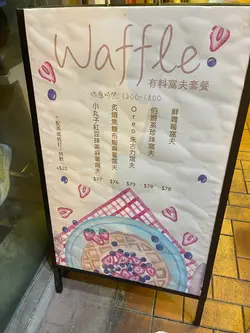 Waffle
有料窩夫套餐
供應時間: 1200-1800
鮮雜莓窩夫
$78
伯爵茶珍珠窩夫
$79
Oreo朱古力窩夫
$79
炙燒焦糖布甸窩窩夫
$76
小丸子紅豆抹茶麻糬窩夫
$77